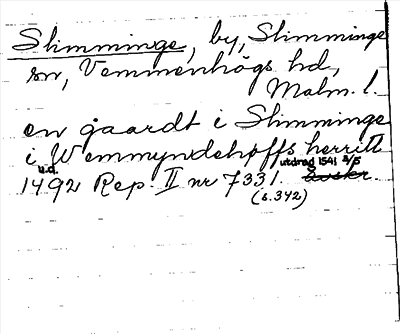 Slimminge, by, Slimminge
sn, Vemmenhögs hd,
Malm. l.
en gaardt i Slimminge
i Wemmyndehøffs herritt
u.d. utdrag 1541 3/5
1492 Rep. II nr 7331.
(s. 342)